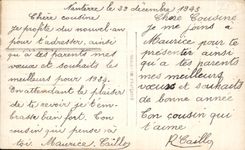 Nanterre le 29 décembre 1943
Chère cousine
je profite du nouvel an
pour t'adresser, ainsi
qu'à tes parents mes
vœux et souhaits les
meilleurs pour 1944.
En attendant le plaisir
de te revoir je t'em-
brasse bien fort. Ton
cousin qui pense à
toi. Maurice. Caillo
Chère Cousine
je me joins à
Maurice pour te
présenter ainsi
qu'à tes parents
mes meilleurs
vœux et souhaits
de bonne année
Ton cousin qui
t'aime
R Caillo